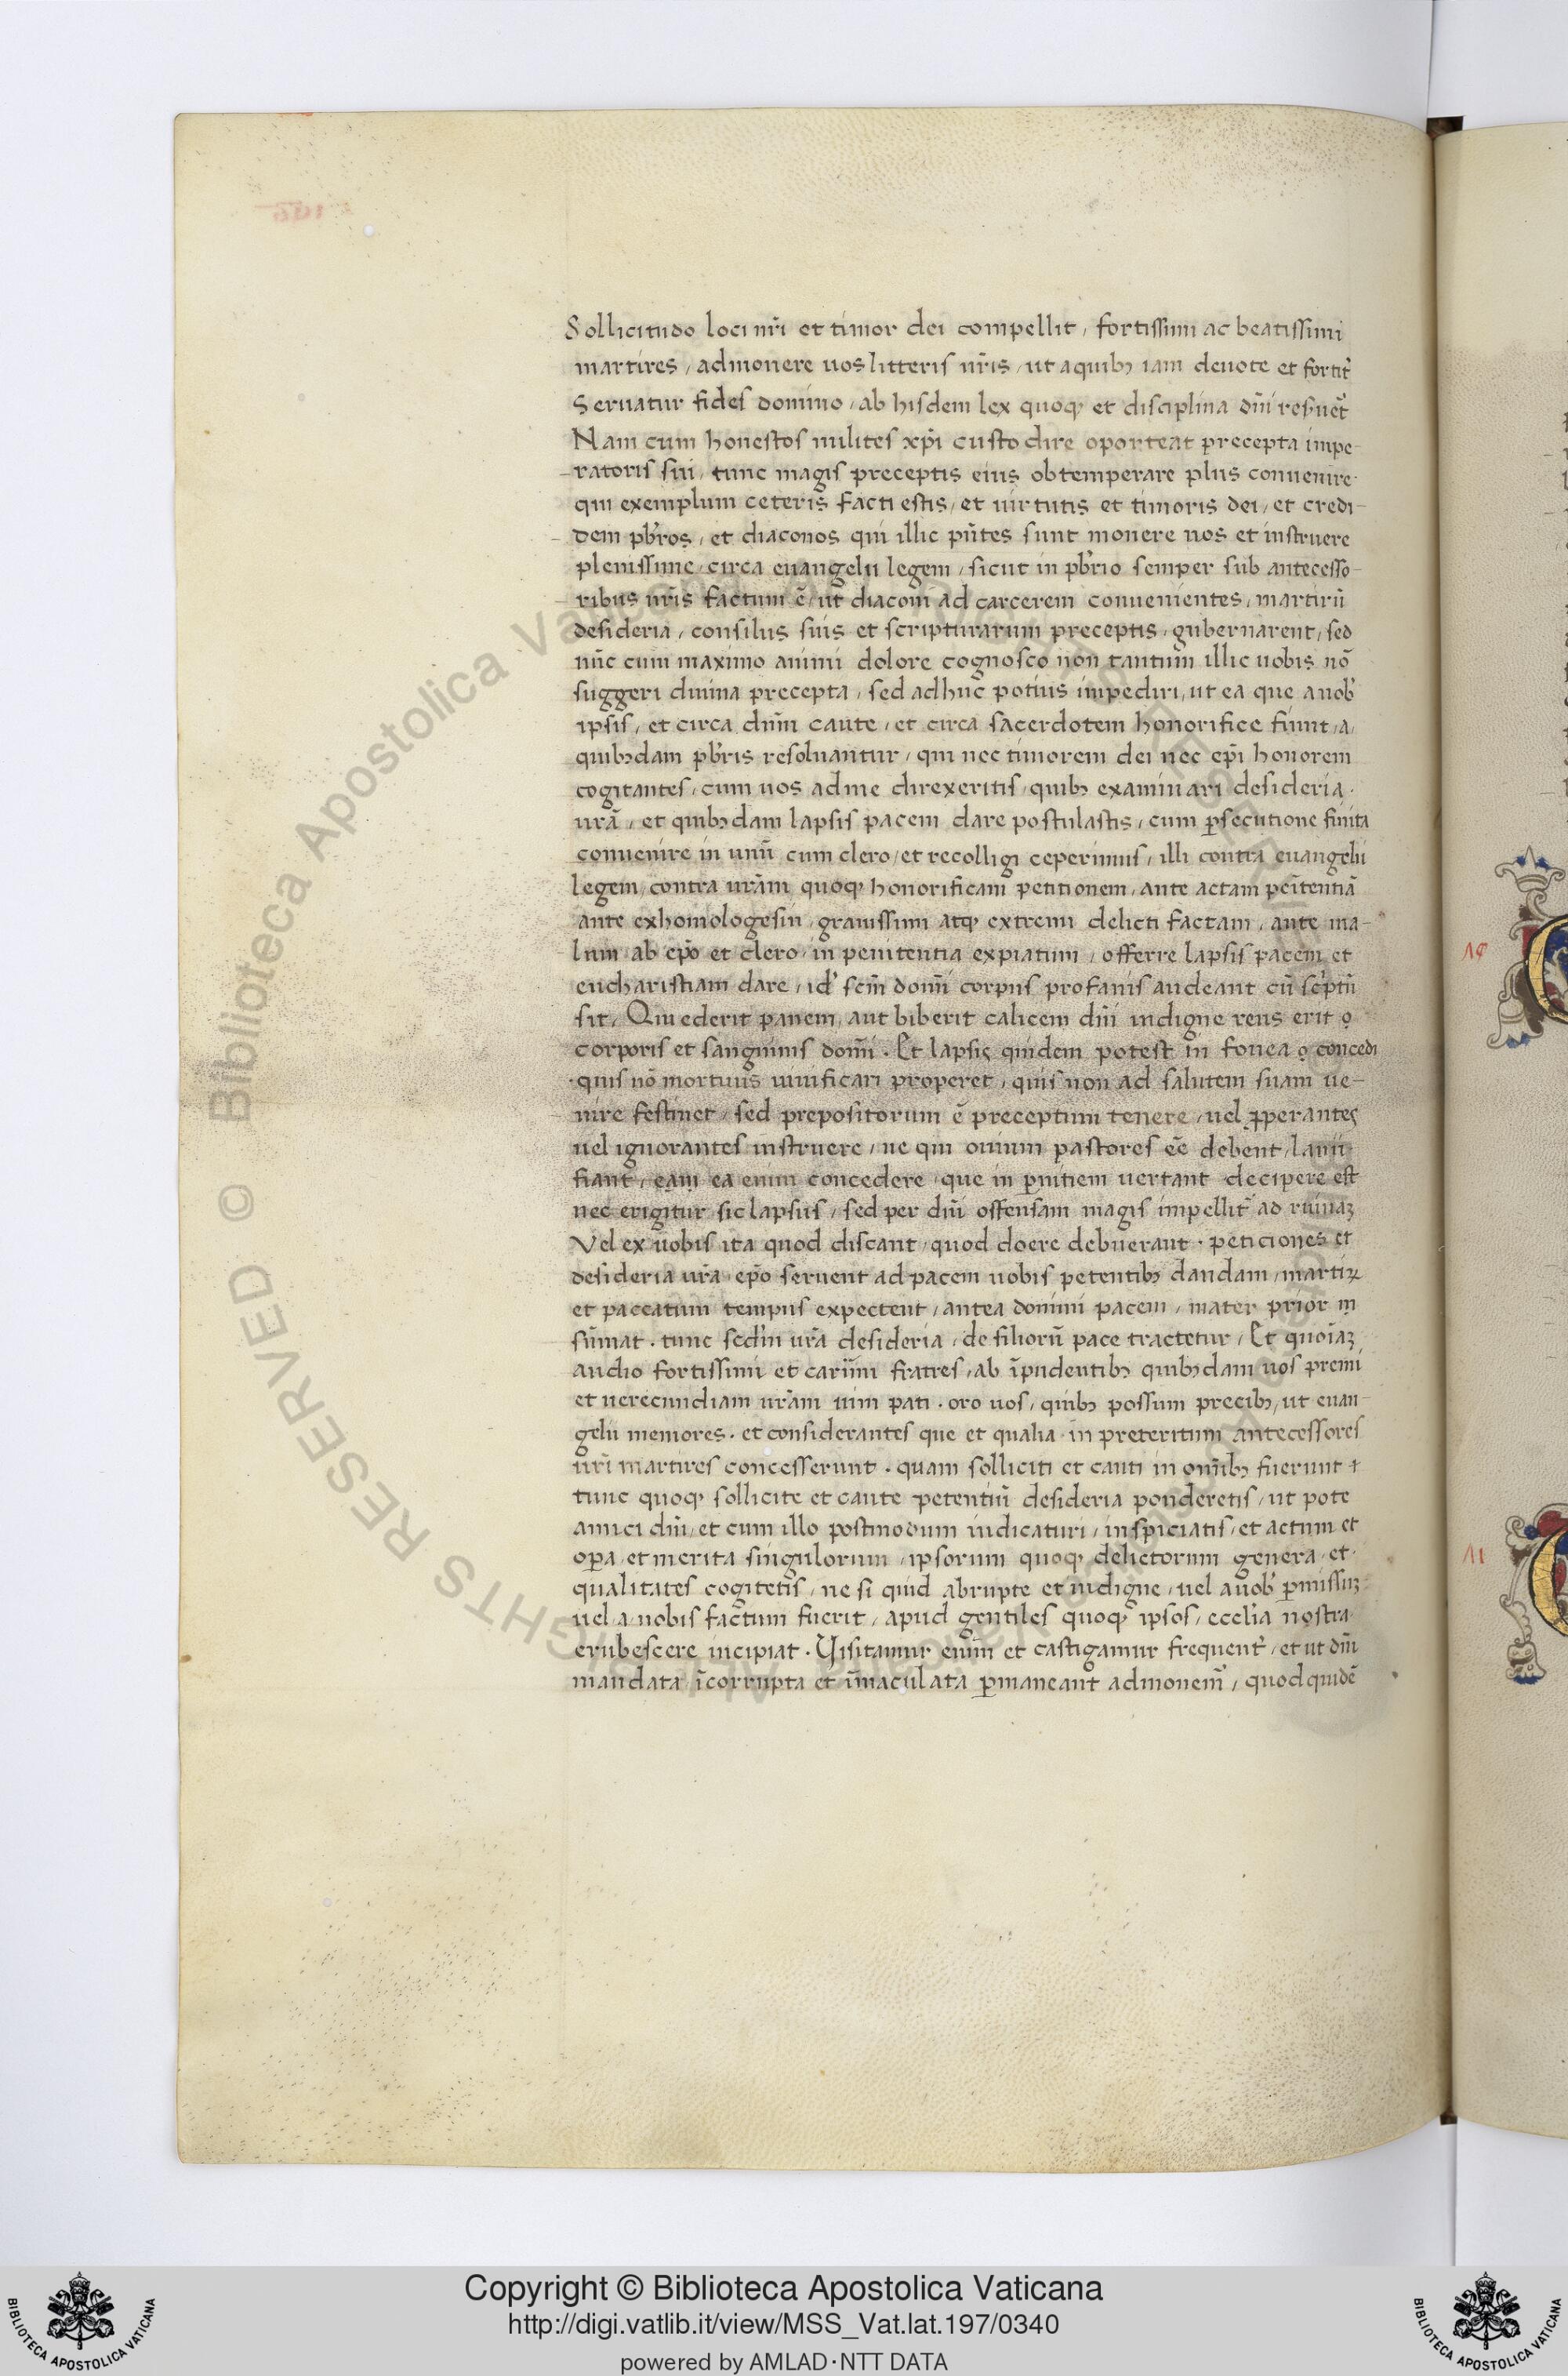 Sollicitudo loci nr̄i et timor dei compellit, fortissimi ac beatissimi
martires, admonere uos litteris nr̄is, ut a quibꝫ iam deuote et fortit̄
Seruatur fides domino, ab hisdem lex quoqꝫ et disciplina dn̄i res̓uet̄
Nam cum honestos milites xp̄i custodire oporteat precepta impe-
ratoris sui, tunc magis preceptis eius obtemperare plus conuenire
qui exemplum ceteris facti estis, et uirtutis et timoris dei, et credi-
dem pb̄ros, et diaconos qui illic pn̄tes sunt monere uos et instruere
plenissime circa euangelii legem, sicut in pb̄rio semper sub antecesso-
ribus nr̄is factum ē, ut diaconi ad carcerem conuenientes, martirū
desideria, consiliis suis et scripturarum preceptis, gubernarent, sed
nūc cum maximo animi dolore cognosco non tantum illic uobis nō
suggeri diuina precepta, sed adhuc potius impediri, ut ea que a uob̓
ipsis, et circa dnm̄ caute, et circa sacerdotem honorifice fiunt, a,
quibꝫdam pb̄ris resoluantur, qui nec timorem dei nec ep̄i honorem
cogitantes, cum uos ad me direxeritis, quibꝫ examinari desideria
urā, et quibꝫdam lapsis pacem dare postulastis, cum ꝑsecutione finita
conuenire in unū cum clero, et recolligi ceperimus, illi contra euangelii
legem, contra urām quoqꝫ honorificam petitionem, ante actam pen̄tentiā
ante exhomologesin, grauissimi atqꝫ extremi delicti factam, ante ma-
lum ab ep̄o et clero in penitentia expiatum, offerre lapsis pacem et
eucharistiam dare, id̓ scm̄ domi̅ corpus profanis audeant cū scr̓ptū
sit, Qui ederit panem, aut biberit calicem dn̄i indigne reus erit o
corporis et sanguinis domi̅. Et lapsis quidem potest in fouea o concedi
quis nō mortuus uiuificari properet, quis non ad salutem suam ue-
nire festinet, sed prepositorum ē preceptum tenere, uel ꝓperantes
uel ignorantes instruere, ne qui ouium pastores eē debent, lanii
fiant, eam ea enim concedere que in ꝑnitiem uertant decipere est
nec erigitur sic lapsus, sed per dn̄i offensam magis impellit ad ruinaꝫ
Vel ex uobis ita quod discant, quod doere debuerant. peticiones et
desideria urā ep̄o seruent ad pacem uobis petentibꝫ dandam, martiꝝ
et paccatum tempus expectent, antea domini pacem, mater prior in
sūmat. tunc scd̓m urā desideria, de filiorū pace tractetur, Et quoiāꝫ
audio fortissimi et cariīmi fratres, ab īpudentibꝫ quibꝫdam uos premi
et uerecundiam urām uim pati. oro uos, quibꝫ possum precibꝫ, ut euan-
gelii memores. et considerantes que et qualia in preteritum antecessores
ur̄i martires concesserunt. quam solliciti et cauti in om̄ibꝫ fuerunt
tunc quoqꝫ sollicite et caute petentiū desideria ponderetis, ut pote
amici dn̄i, et cum illo postmodum iudicaturi, inspiciatis, et actum et
oꝑa, et merita singulorum, ipsorum quoqꝫ delictorum genera, et
qualitates cogitetis, ne si quid abrupte et indigne, uel a uob̓ ꝑmissuꝫ
uel a nobis factum fuerit, apud gentiles quoqꝫ ipsos, eccl̓ia nostra
erubescere incipiat. Uisitamur enim et castigamur frequent̄, et ut dn̄i
mandata īcorrupta et īmaculata ꝑmaneant admonem̄, quod quidē
© Biblioteca Apostolica Vaticana
RIGHTS RESERVED
Copyright © Biblioteca Apostolica Vaticana
http://digi.vatlib.it/view/MSS_Vat.lat.197/0340
powered by AMLAD·NTT DATA
BIBLIOTECA APOSTOLICA VATICANA
BIBLIOTECA APOSTOLICA VATICANA